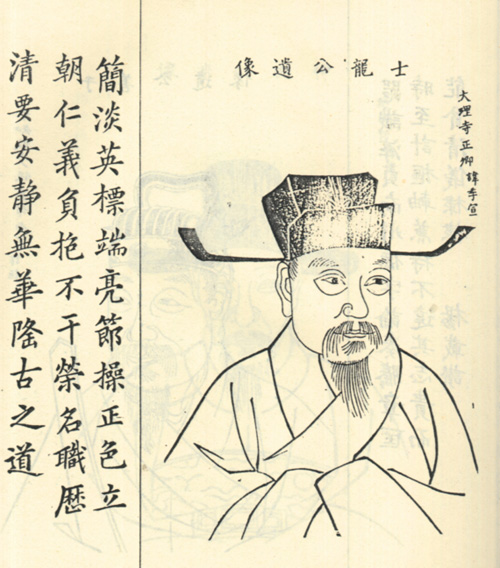 士龍公遺像
大理寺正卿諱季宣
簡淡英標端亮節操正色立
朝仁義負抱不干榮名職歷
清要安靜無華隆古之道